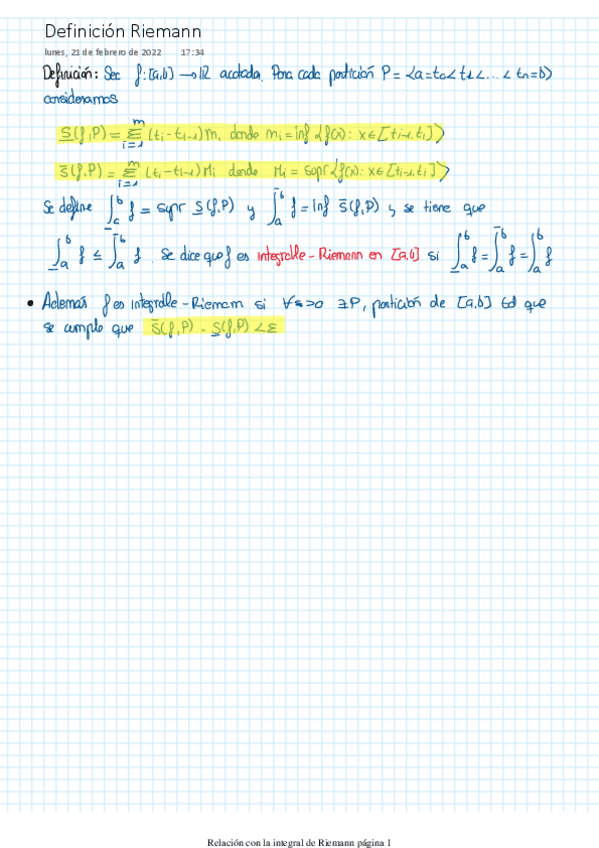 Definición Riemann
lunes, 21 de febrero de 2022 17:34
Definición: Sea f: [a,b] → ℝ acotada. Para cada partición P = {a=t₀<t₁<...<tₙ=b}
consideramos
S̲(f,P) = Σᵢ₌₁ᵐ (tᵢ-tᵢ₋₁)mᵢ donde mᵢ = inf {f(x): x∈[tᵢ₋₁,tᵢ]}
S̅(f,P) = Σᵢ₌₁ᵐ (tᵢ-tᵢ₋₁)Mᵢ donde Mᵢ = supr {f(x): x∈[tᵢ₋₁,tᵢ]}
Se define ∫̲ₐᵇ f = supr S̲(f,P) y ∫̅ₐᵇ f = inf S̅(f,P) y se tiene que
∫̲ₐᵇ f ≤ ∫̅ₐᵇ f. Se dice que f es integrable-Riemann en [a,b] si ∫̲ₐᵇ f = ∫̅ₐᵇ f = ∫ₐᵇ f
• Además f es integrable-Riemann si ∀ε>0 ∃P, partición de [a,b] tal que
se cumple que S̅(f,P) - S̲(f,P) < ε
Relación con la integral de Riemann página 1